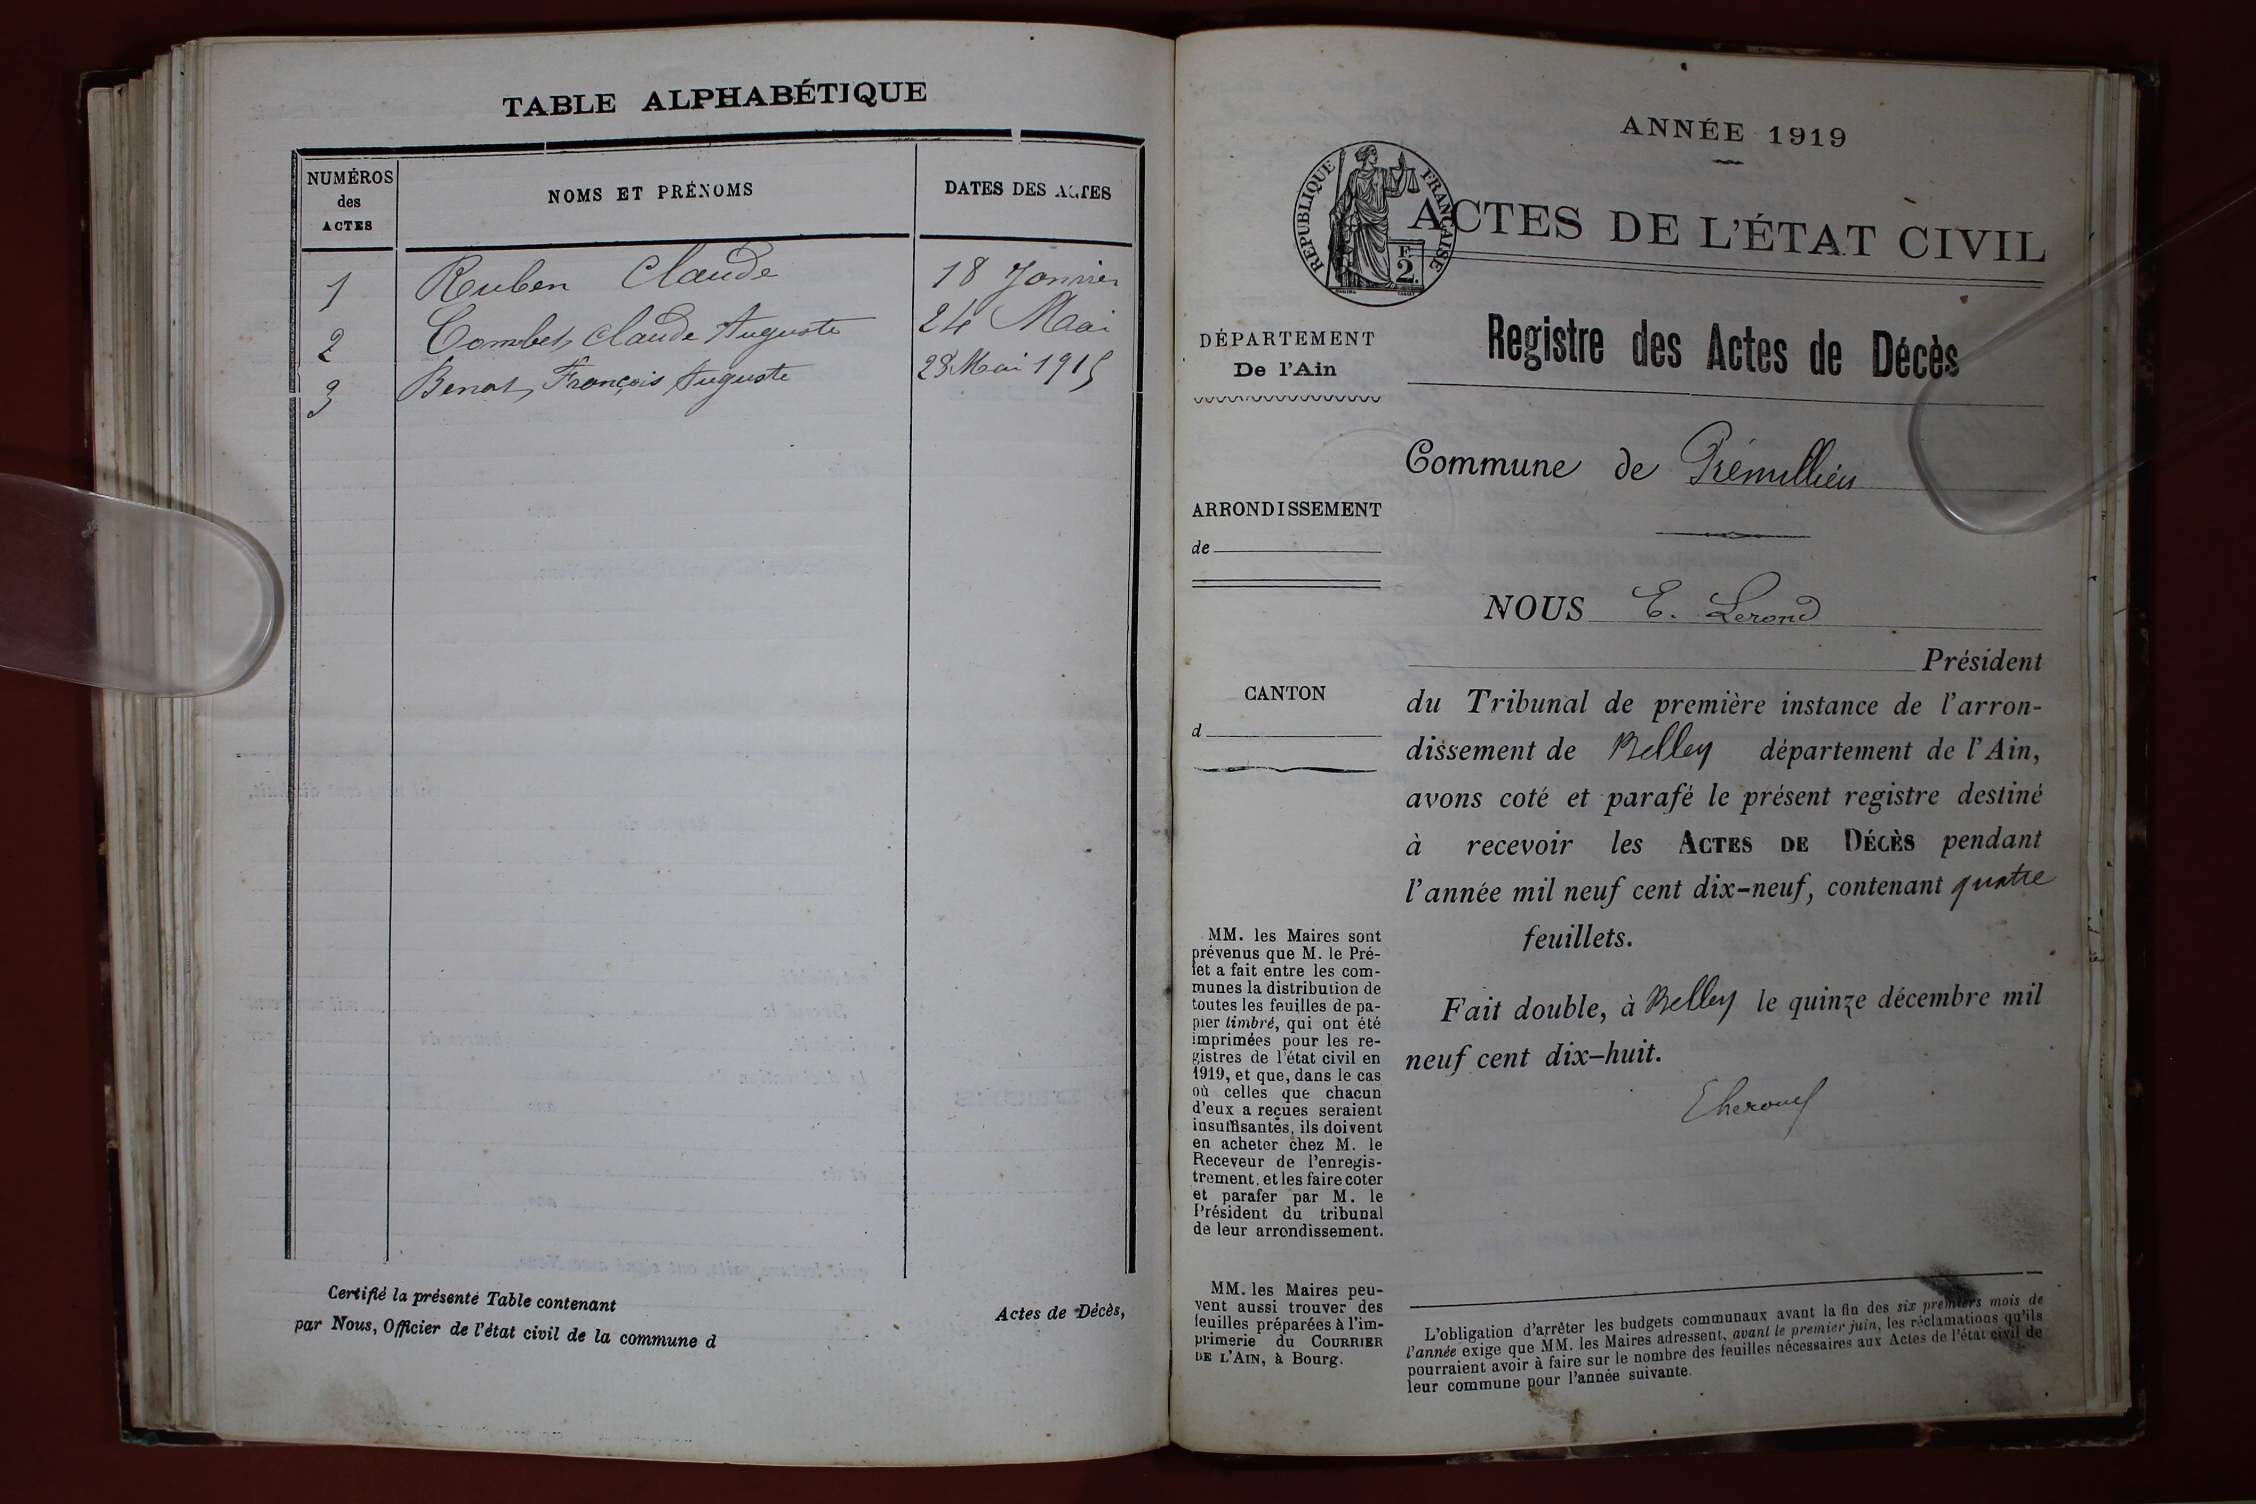 TABLE ALPHABÉTIQUE
NUMÉROS des ACTES
NOMS ET PRÉNOMS
DATES DES ACTES
1 Ruben Claude 18 Janvier
2 Combet, Claude Auguste 24 Mai
3 Benat, François Auguste 23 Mai 1915
Certifié la présente Table contenant Actes de Décès,
par Nous, Officier de l'état civil de la commune d
ANNÉE 1919
RÉPUBLIQUE FRANÇAISE
F.
2.
ACTES DE L'ÉTAT CIVIL
Registre des Actes de Décès
DÉPARTEMENT
De l'Ain
ARRONDISSEMENT
de
CANTON
d
MM. les Maires sont
prévenus que M. le Pré-
fet a fait entre les com-
munes la distribution de
toutes les feuilles de pa-
pier timbré, qui ont été
imprimées pour les re-
gistres de l'état civil en
1919, et que, dans le cas
où celles que chacun
d'eux a reçues seraient
insuffisantes, ils doivent
en acheter chez M. le
Receveur de l'enregis-
trement, et les faire coter
et parafer par M. le
Président du tribunal
de leur arrondissement.
MM. les Maires peu-
vent aussi trouver des
feuilles préparées à l'im-
primerie du COURRIER
DE L'AIN, à Bourg.
Commune de Prémillieu
NOUS E. Lerond
Président
du Tribunal de première instance de l'arron-
dissement de Belley département de l'Ain,
avons coté et parafé le présent registre destiné
à recevoir les ACTES DE DÉCÈS pendant
l'année mil neuf cent dix-neuf, contenant quatre
feuillets.
Fait double, à Belley le quinze décembre mil
neuf cent dix-huit.
L'obligation d'arrêter les budgets communaux avant la fin des six premiers mois de
l'année exige que MM. les Maires adressent, avant le premier juin, les réclamations qu'ils
pourraient avoir à faire sur le nombre des feuilles nécessaires aux Actes de l'état civil de
leur commune pour l'année suivante.